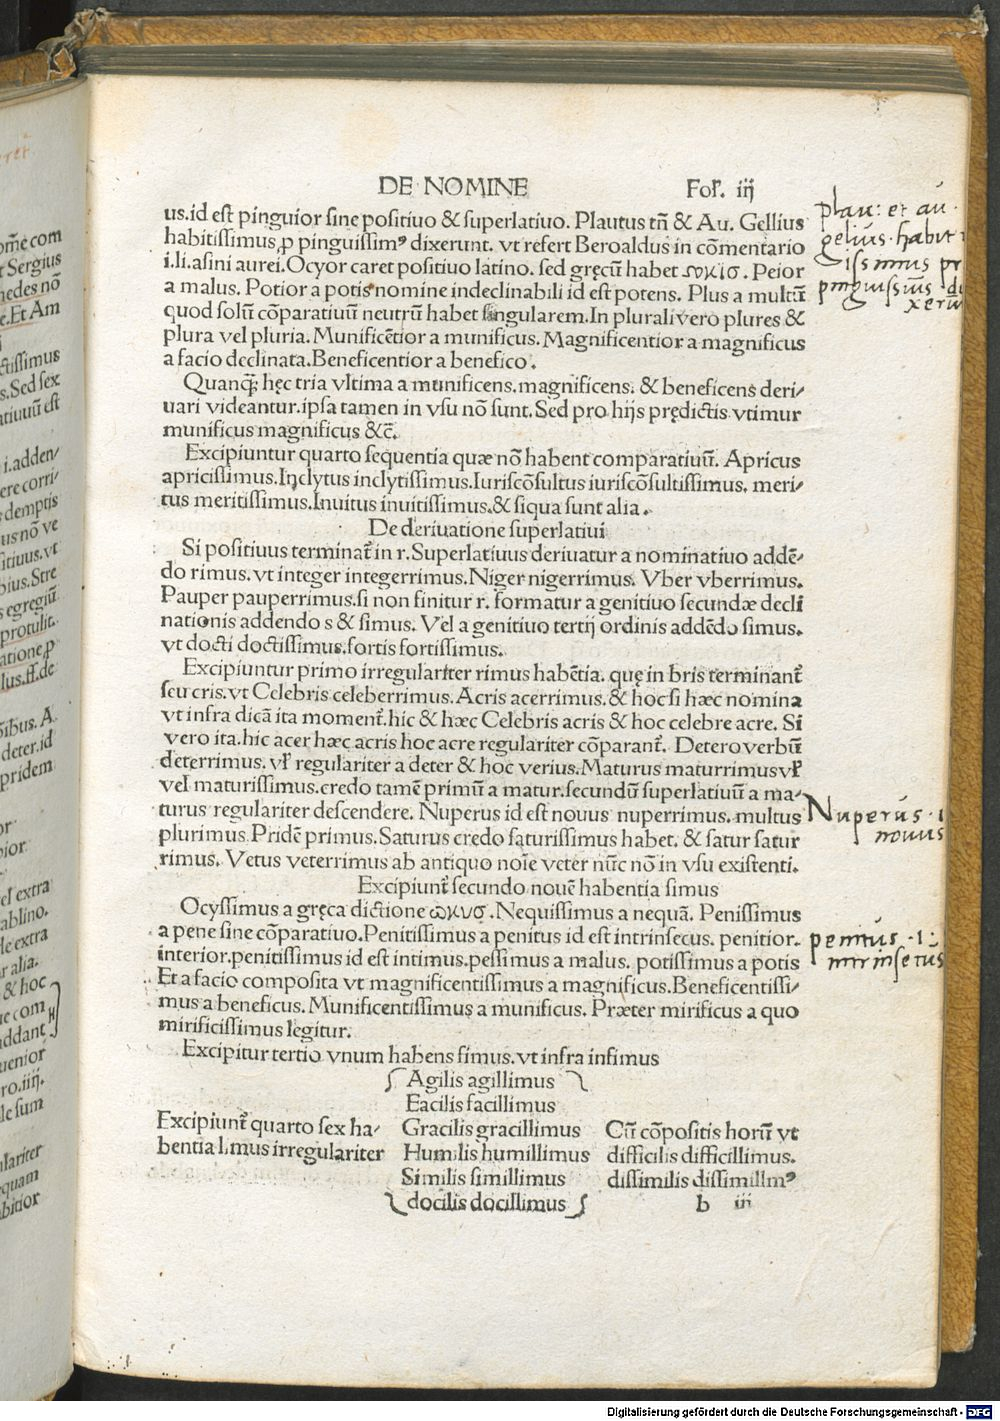 DE NOMINE Fol̃. iij
us.id est pinguior sine positiuo & superlatiuo. Plautus tñ & Au. Gellius
habitissimus ꝓ pinguissimꝰ dixerunt. vt refert Beroaldus in cõmentario
i.li.asini aurei.Ocyor caret positiuo latino. sed gręcũ habet
. Peior
a malus. Potior a potis nomine indeclinabili id est potens. Plus a multũ
quod solũ cõparatiuũ neutrũ habet singularem.In plurali vero plures &
plura vel pluria. Munificẽtior a munificus. Magnificentior a magnificus
a facio declinata.Beneficentior a benefico.
Quanꝗ̃ hęc tria vltima a munificens.magnificens. & beneficens deri/
uari videantur.ipsa tamen in vsu nõ sunt. Sed pro hijs prędictis vtimur
munificus magnificus &c̃.
Excipiuntur quarto sequentia quæ nõ habent comparatiuũ. Apricus
apricissimus.Inclytus inclytissimus.Iuriscõsultus iuriscõsultissimus. meri/
tus meritissimus.Inuitus inuitissimus.& siqua sunt alia.
De deriuatione superlatiui
Si positiuus terminat̃ in r.Superlatiuus deriuatur a nominatiuo addẽ/
do rimus. vt integer integerrimus.Niger nigerrimus. Vber vberrimus.
Pauper pauperrimus.si non finitur r. formatur a genitiuo secundæ decli
nationis addendo s & simus. Vel a genitiuo tertij ordinis addẽdo simus.
vt docti doctissimus.fortis fortissimus.
Excipiuntur primo irregulariter rimus habẽtia. quę in bris terminant̃
seu cris.vt Celebris celeberrimus. Acris acerrimus. & hoc si hæc nomina
vt infra dicã ita moment̃.hic & hæc Celebris acris & hoc celebre acre. Si
vero ita.hic acer hæc acris hoc acre regulariter cõparant̃. Detero verbũ
deterrimus. vl̃ regulariter a deter & hoc verius.Maturus maturrimus vl̃
vel maturissimus.credo tamẽ primũ a matur.secundũ superlatiuũ a ma/
turus regulariter descendere. Nuperus id est nouus nuperrimus. multus
plurimus Pridẽ primus.Saturus credo saturissimus habet. & satur satur
rimus. Vetus veterrimus ab antiquo noĩe veter nũc nõ in vsu existenti.
Excipiunt̃ secundo nouẽ habentia simus
Ocyssimus a gręca dictione ωκυσ.Nequissimus a nequã. Penissimus
a pene sine cõparatiuo.Penitissimus a penitus id est intrinsecus. penitior.
interior.penitissimus id est intimus.pessimus a malus. potissimus a potis
Et a facio composita vt magnificentissimus a magnificus.Beneficentissi/
mus a beneficus. Munificentissimus a munificus. Præter mirificus a quo
mirificissimus legitur.
Excipitur tertio vnum habens simus.vt infra infimus
Agilis agillimus
Facilis facillimus
Excipiunt̃ quarto sex ha/
bentia limus irregulariter
Gracilis gracillimus
Humilis humillimus
Similis simillimus
docilis docillimus
Cũ cõpositis horũ vt
difficilis difficillimus.
dissimilis dissimillmꝰ
b iij
plau: et au.
gelius. habit
issimus pr
pinguissius di
xerũ
Nuperus. i
nouus
penitus. i:
intrinsecus
ome᷈ com
Sergius
medes nõ
e.Et Am
ctissimus
s.Sed sex
atiuuũ est
i.adden/
ere corri/
s demptis
us nõ ve
sitiuus.vt
bius.Stre
s egregiũ
protulit.
atione ꝓ
lus.ff.de
deter.id
pridem
el extra
ablino.
le extra
r alia.
& hoc
ue com
ddant
uenior
ro.iiij.
le sum
lariter
quam
bitior
Digitalisierung gefördert durch die Deutsche Forschungsgemeinschaft - DFG